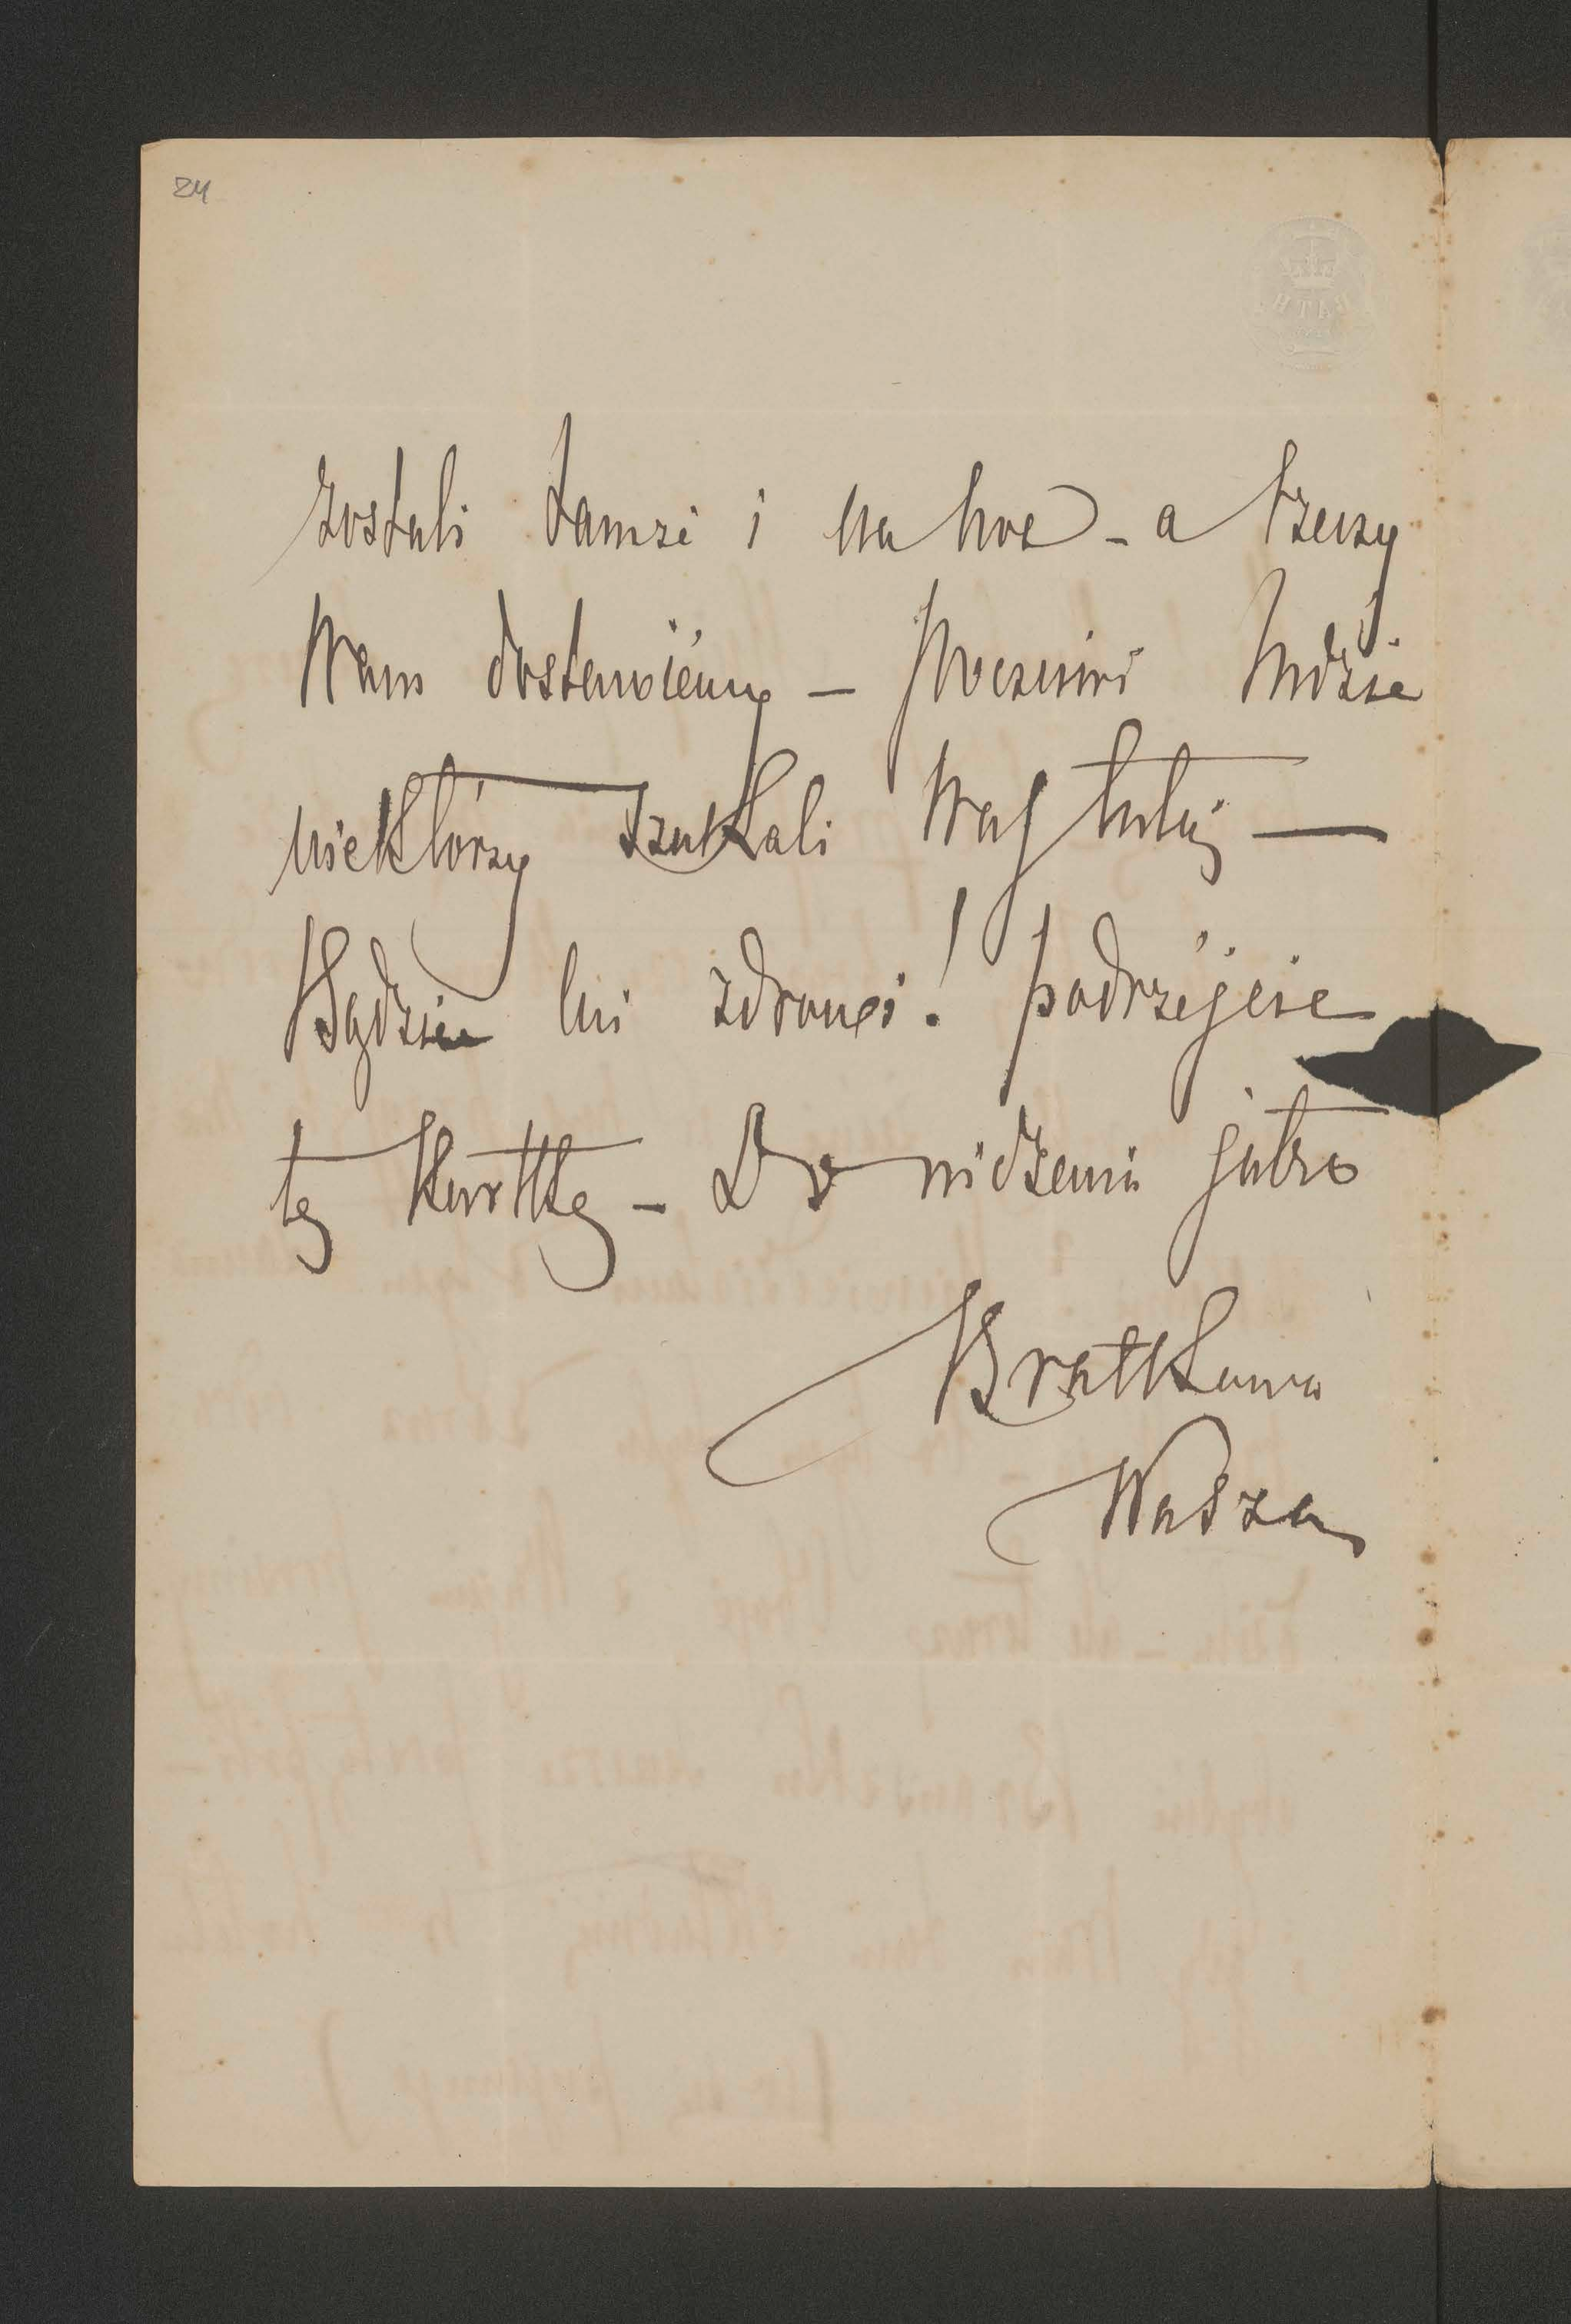 24
BATH
zostali tamże i na noc - a rzeczy
Wam dostawiemy - Poczciwi ludzie
niektórzy szukali Was tutaj —
Bądźcie mi zdrowi! podrzyjcie
tę kartkę - Do widzenia jutro
Bratkowa
Wasza